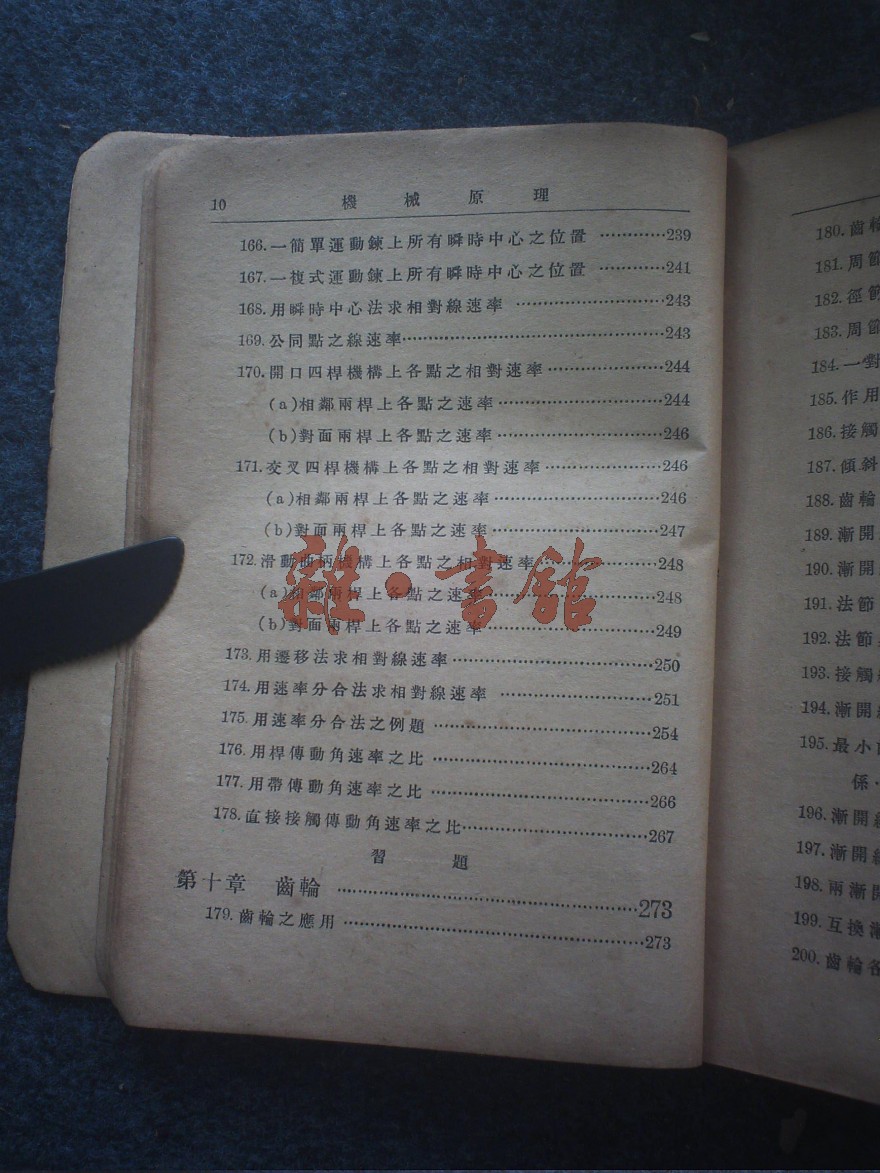 10 機械原理
166.一簡單運動鍊上所有瞬時中心之位置 …………239
167.一複式運動鍊上所有瞬時中心之位置 …………241
168.用瞬時中心法求相對線速率 …………………243
169.公同點之線速率…………………………………243
170.開口四桿機構上各點之相對速率………………244
(a)相鄰兩桿上各點之速率………………………244
(b)對面兩桿上各點之速率………………………246
171.交叉四桿機構上各點之相對速率………………246
(a)相鄰兩桿上各點之速率………………………246
(b)對面兩桿上各點之速率………………………247
172.滑動曲柄機構上各點之相對速率………………248
(a)相鄰兩桿上各點之速率………………………248
(b)對面兩桿上各點之速率………………………249
173.用遷移法求相對線速率…………………………250
174.用速率分合法求相對線速率 …………………251
175.用速率分合法之例題 …………………………254
176.用桿傳動角速率之比 …………………………264
177.用帶傳動角速率之比 …………………………266
178.直接接觸傳動角速率之比………………………267
習題
第十章 齒輪 ………………………………………273
179.齒輪之應用 ……………………………………273
雜·書館
180.齒輪
181.周節
182.徑節
183.周節
184.一對
185.作用
186.接觸
187.傾斜
188.齒輪
189.漸開
190.漸開
191.法節
192.法節
193.接觸
194.漸開
195.最小
係
196.漸開線
197.漸開線
198.兩漸開
199.互換漸
200.齒輪各